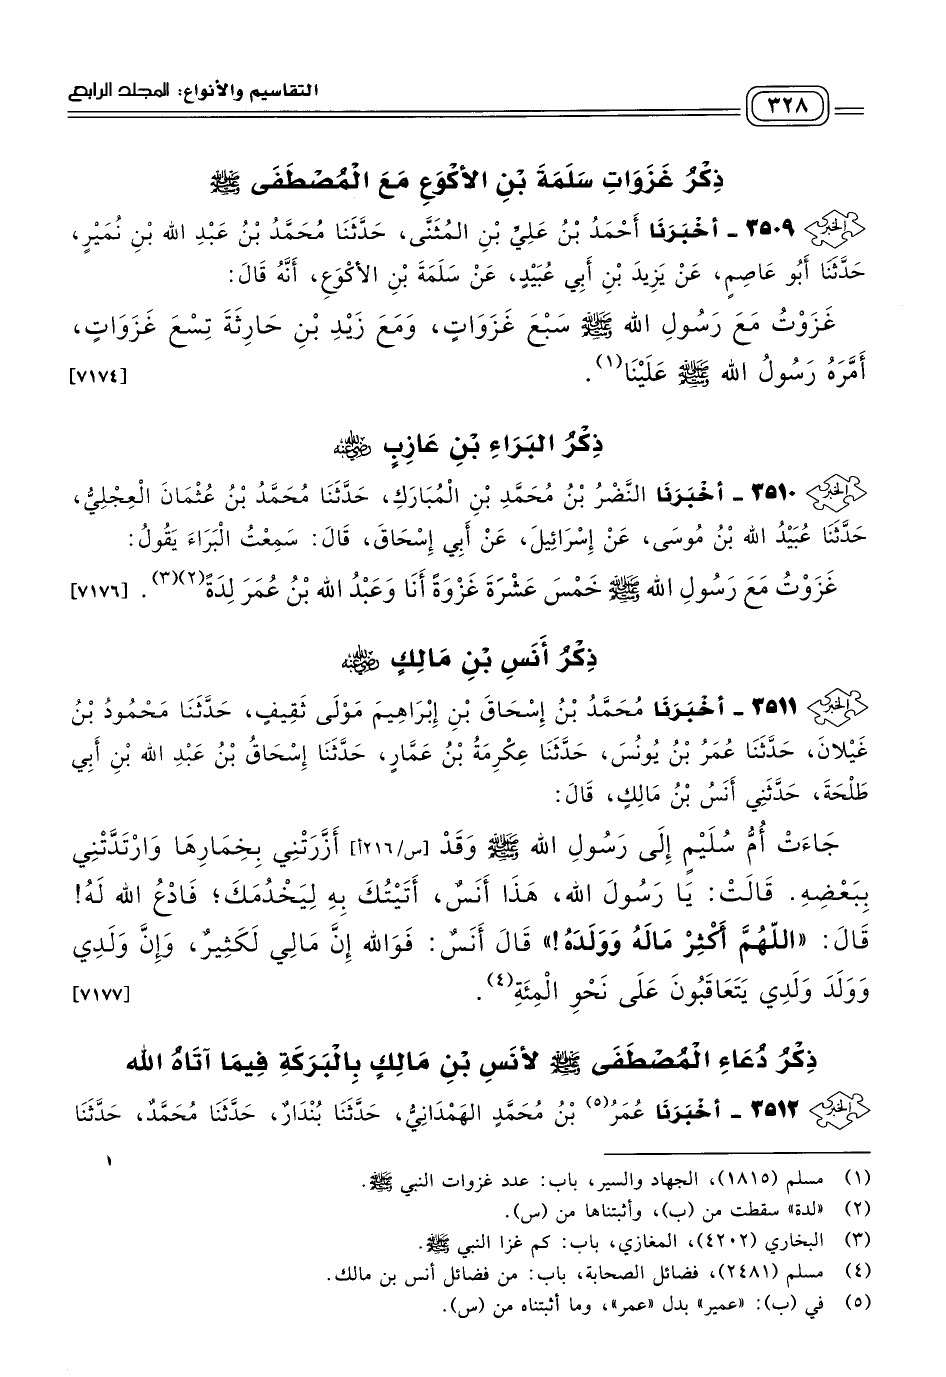 ٣٢٨ التقاسيم والأنواع: المجلد الرابع
ذِكْرُ غَزَوَاتِ سَلَمَةَ بْنِ الأَكْوَعِ مَعَ الْمُصْطَفَى ﷺ
٣٥٠٩ ـ أَخْبَرَنَا أَحْمَدُ بْنُ عَلِيِّ بْنِ المُثَنَّى، حَدَّثَنَا مُحَمَّدُ بْنُ عَبْدِ الله بْنِ نُمَيْرٍ،
حَدَّثَنَا أَبُو عَاصِمٍ، عَنْ يَزِيدَ بْنِ أَبِي عُبَيْدٍ، عَنْ سَلَمَةَ بْنِ الأَكْوَعِ، أَنَّهُ قَالَ:
غَزَوْتُ مَعَ رَسُولِ الله ﷺ سَبْعَ غَزَوَاتٍ، وَمَعَ زَيْدِ بْنِ حَارِثَةَ تِسْعَ غَزَوَاتٍ،
أَمَّرَهُ رَسُولُ الله ﷺ عَلَيْنَا(١). [٧١٧٤]
ذِكْرُ البَرَاءِ بْنِ عَازِبٍ رضي الله عنه
٣٥١٠ ـ أَخْبَرَنَا النَّضْرُ بْنُ مُحَمَّدِ بْنِ الْمُبَارَكِ، حَدَّثَنَا مُحَمَّدُ بْنُ عُثْمَانَ الْعِجْلِيُّ،
حَدَّثَنَا عُبَيْدُ الله بْنُ مُوسَى، عَنْ إِسْرَائِيلَ، عَنْ أَبِي إِسْحَاقَ، قَالَ: سَمِعْتُ الْبَرَاءَ يَقُولُ:
غَزَوْتُ مَعَ رَسُولِ الله ﷺ خَمْسَ عَشْرَةَ غَزْوَةً أَنَا وَعَبْدُ الله بْنُ عُمَرَ لِدَةً(٢)(٣). [٧١٧٦]
ذِكْرُ أَنَسِ بْنِ مَالِكٍ رضي الله عنه
٣٥١١ ـ أَخْبَرَنَا مُحَمَّدُ بْنُ إِسْحَاقَ بْنِ إِبْرَاهِيمَ مَوْلَى ثَقِيفٍ، حَدَّثَنَا مَحْمُودُ بْنُ
غَيْلَانَ، حَدَّثَنَا عُمَرُ بْنُ يُونُسَ، حَدَّثَنَا عِكْرِمَةُ بْنُ عَمَّارٍ، حَدَّثَنَا إِسْحَاقُ بْنُ عَبْدِ الله بْنِ أَبِي
طَلْحَةَ، حَدَّثَنِي أَنَسُ بْنُ مَالِكٍ، قَالَ:
جَاءَتْ أُمُّ سُلَيْمٍ إِلَى رَسُولِ الله ﷺ وَقَدْ [س/٢١٦أ] أَزَّرَتْنِي بِخِمَارِهَا وَارْتَدَّتْنِي
بِبَعْضِهِ. قَالَتْ: يَا رَسُولَ الله، هَذَا أَنَسٌ، أَتَيْتُكَ بِهِ لِيَخْدُمَكَ؛ فَادْعُ الله لَهُ!
قَالَ: «اللَّهُمَّ أَكْثِرْ مَالَهُ وَوَلَدَهُ!» قَالَ أَنَسٌ: فَوَالله إِنَّ مَالِي لَكَثِيرٌ، وَإِنَّ وَلَدِي
وَوَلَدَ وَلَدِي يَتَعَاقَبُونَ عَلَى نَحْوِ الْمِئَةِ(٤). [٧١٧٧]
ذِكْرُ دُعَاءِ الْمُصْطَفَى ﷺ لأَنَسِ بْنِ مَالِكٍ بِالْبَرَكَةِ فِيمَا آتَاهُ الله
٣٥١٢ ـ أَخْبَرَنَا عُمَرُ(٥) بْنُ مُحَمَّدٍ الهَمْدَانِيُّ، حَدَّثَنَا بُنْدَارٌ، حَدَّثَنَا مُحَمَّدٌ، حَدَّثَنَا
(١) مسلم (١٨١٥)، الجهاد والسير، باب: عدد غزوات النبي ﷺ.
(٢) «لدة» سقطت من (ب)، وأثبتناها من (س).
(٣) البخاري (٤٢٠٢)، المغازي، باب: كم غزا النبي ﷺ.
(٤) مسلم (٢٤٨١)، فضائل الصحابة، باب: من فضائل أنس بن مالك.
(٥) في (ب): «عمير» بدل «عمر»، وما أثبتناه من (س).